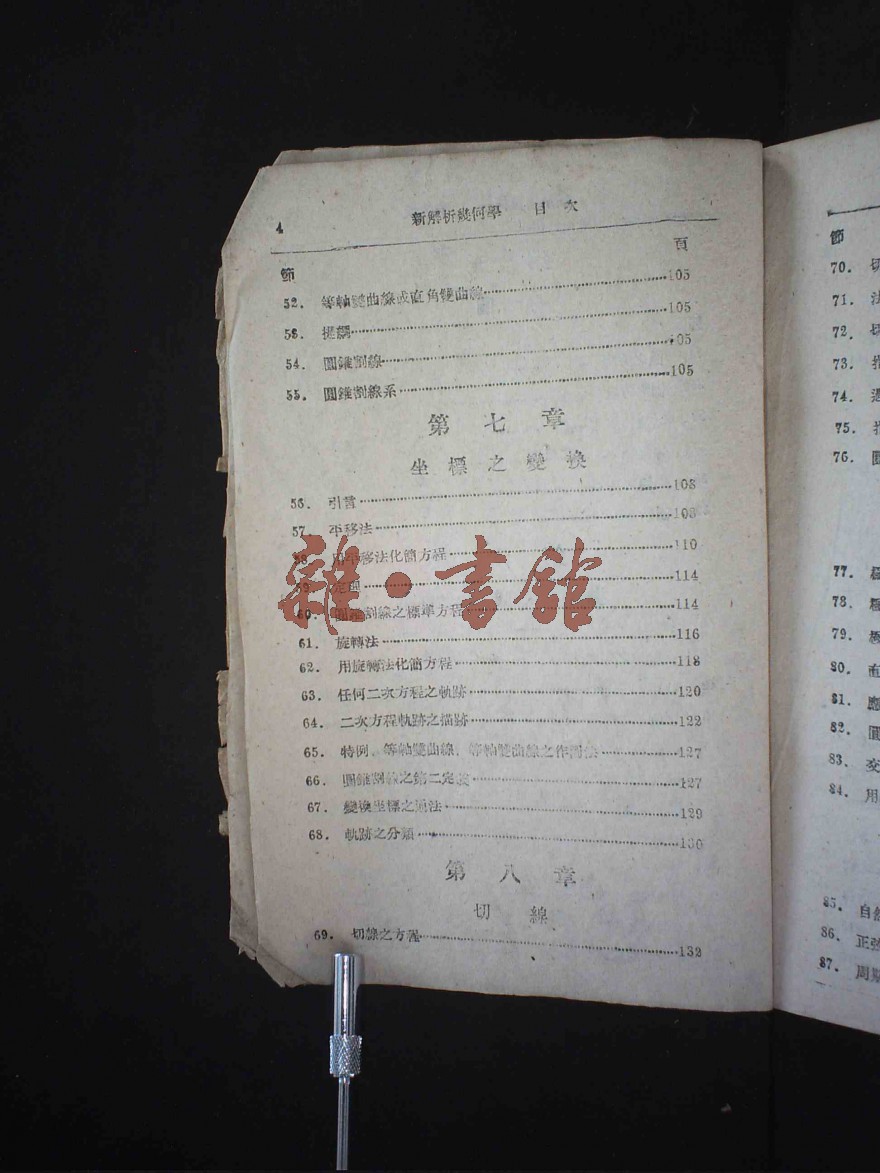 4 新解析幾何學 目次
節 頁
52. 等軸雙曲線或直角雙曲線 105
53. 提綱 105
54. 圓錐割線 105
55. 圓錐割線系 105
第七章
坐標之變換
56. 引言 108
57. 平移法 108
58. 用平移法化簡方程 110
59. 定理 114
60. 圓錐割線之標準方程 114
61. 旋轉法 116
62. 用旋轉法化簡方程 118
63. 任何二次方程之軌跡 120
64. 二次方程軌跡之描跡 122
65. 特例, 等軸雙曲線, 等軸雙曲線之作圖法 127
66. 圓錐割線之第二定義 127
67. 變換坐標之通法 129
68. 軌跡之分類 130
第八章
切線
69. 切線之方程 132
雜·書館
節
70. 切
71. 法
72. 切
73.
74.
75.
76. 圓
77. 極
78. 極
79. 極
80. 直
81. 應
82. 圓
83. 交
84. 用
85. 自然
86. 正弦
87. 周期